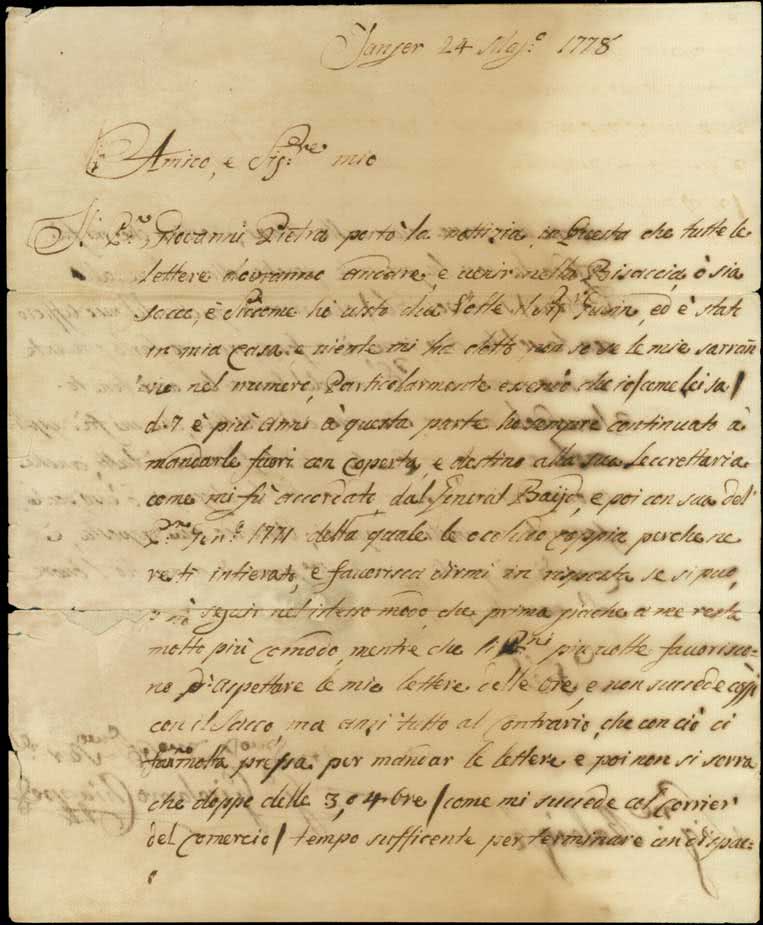 Tanger 24 Mag.º 1778
Amico, e Sig.re mio
Il P.n Giovanni Pietra portò la notizia in questa che tutte le
lettere dovranno andare, e venir nella Bisaccia, ò sia
sacco, e siccome hò visto due volte il Sig.r ed è stato
in mia Casa e niente mi ha detto, non so se le mie sarrañ
nel numero, Particolarmente essendo che io / come lei sa /
d. 7 è più anni à questa parte ho sempre continuato à
mandarle fuori con coperta, e destino alla sua Seccrettaria
come mi fù accordato dal General Baijd, e poi con sua del
P.mo Gen.º 1771 della quale le occludo coppia perche ne
resti intierato, e favorisca dirmi in risposta se si può,
ò nò seguir nel istesso modo, che prima, poiche a me resta
molto più comodo, mentre che li P.ni più volte favorisco-
no d'aspettare le mie lettere delle Ore, e non succede così
con il Sacco, ma anzi tutto al contrario, che con ciò ci
fà molta pressa per mandar le lettere e poi non si serra
che doppo delle 3, o 4 Ore / come mi succede col Corrier
del Comercio / tempo sufficente per terminare un dispac-